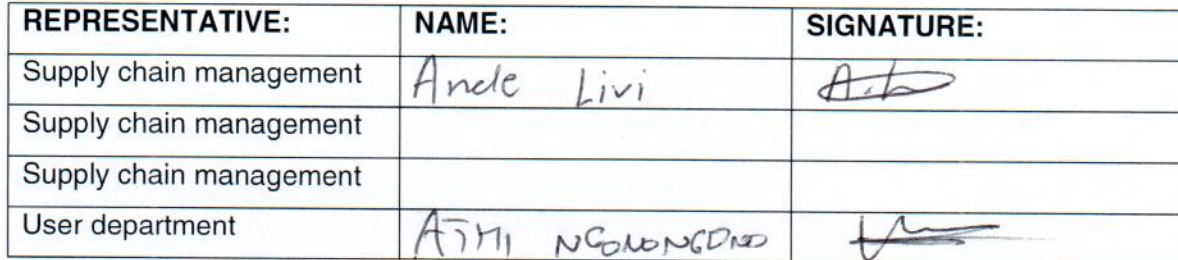 REPRESENTATIVE: NAME: SIGNATURE:
Supply chain management Anele Livi
Supply chain management
Supply chain management
User department